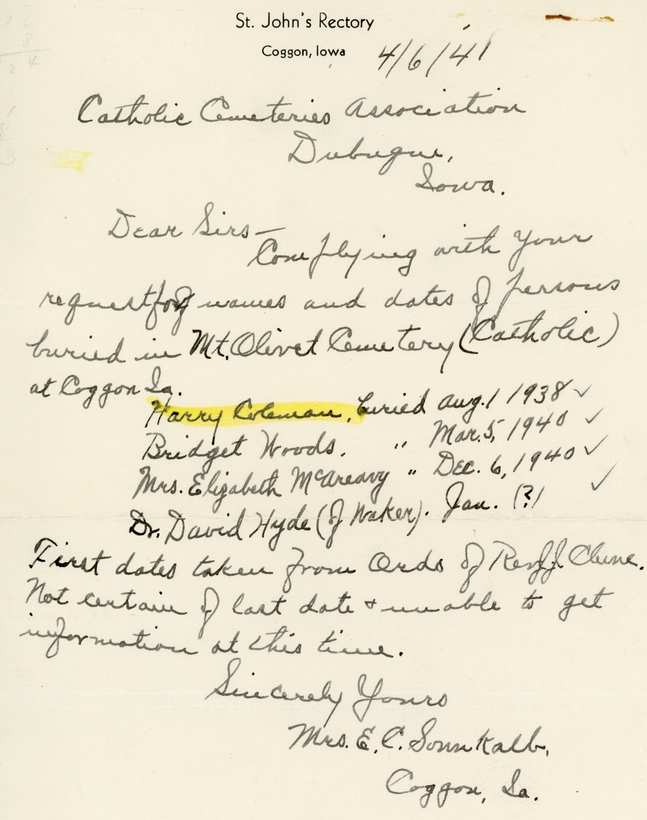 St. John's Rectory
Coggon, Iowa
4/6/41
Catholic Cemeteries Association
Dubuque,
Iowa.
Dear Sirs—
Complying with your
request for names and dates of persons
buried in Mt. Olivet Cemetery (Catholic)
at Coggon Ia.
Harry Coleman, buried Aug. 1 1938 ✓
Bridget Woods. " Mar. 5, 1940 ✓
Mrs. Elizabeth McAreavy " Dec. 6, 1940 ✓
Dr. David Hyde (of Walker). Jan. (?) ✓
First dates taken from Ords of Rev. J. Clune.
Not certain of last date + unable to get
information at this time.
Sincerely Yours
Mrs. E. C. Sonnkalb,
Coggon, Ia.